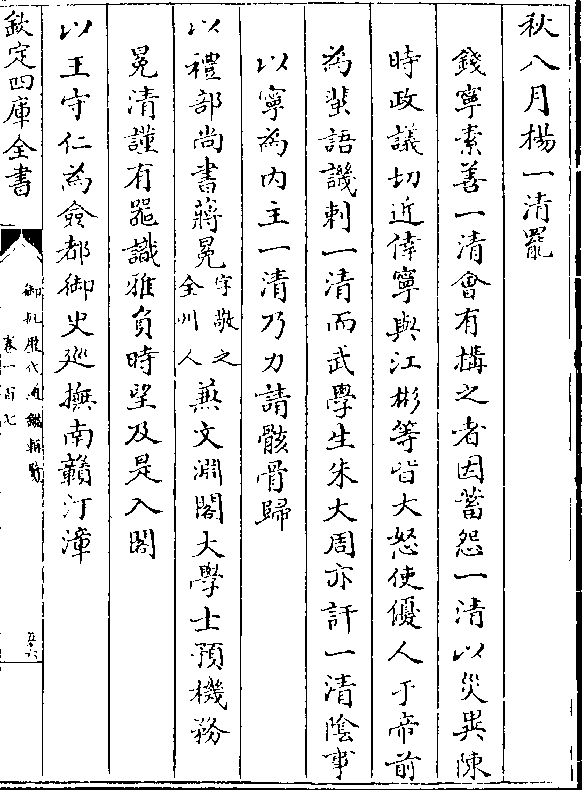 秋八月楊一清罷
錢寧素善一清會有構之者因蓄怨一清以災異陳
時政議切近倖寧與江彬等皆大怒使優人于帝前
為蜚語譏刺一清而武學生朱大周亦訐一清陰事
以寧為内主一清乃力請骸骨歸
以禮部尚書蔣冕字敬之全州人兼文淵閣大學士預機務
冕清謹有器識雅負時望及是入閣
以王守仁為僉都御史廵撫南贛汀漳
欽定四庫全書
御批歷代通鑑輯覽
卷一百七
五六